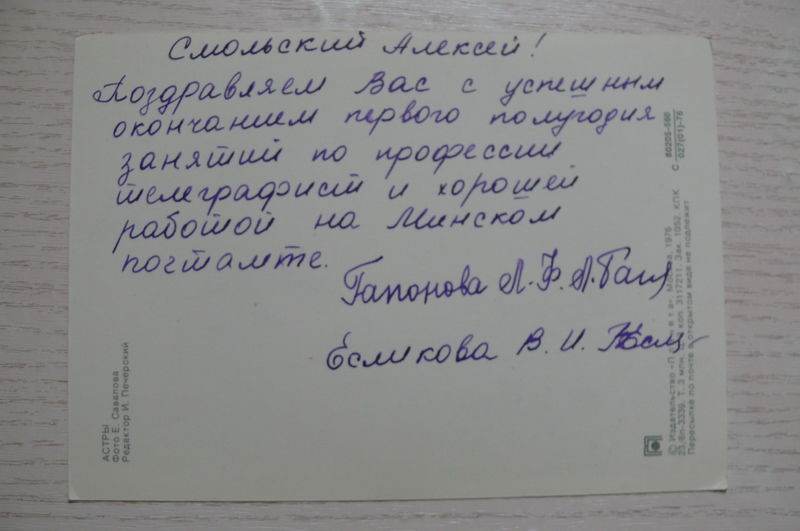 Смольский Алексей!
Поздравляем Вас с успешным
окончанием первого полугодия
занятий по профессии
телеграфист и хорошей
работой на Минском
почтамте.
Гапонова Л.Ф. Л.Гап
Есликова В.И.
АСТРЫ
Фото Е. Савалова
Редактор И. Печерский
© Издательство «Планета». Москва, 1976
23/Вл-3339. Т. 3 млн. коп. 3117211. Зак. 1052. КПК
Пересылке по почте в открытом виде не подлежит
С 80205-590
027(01)-76